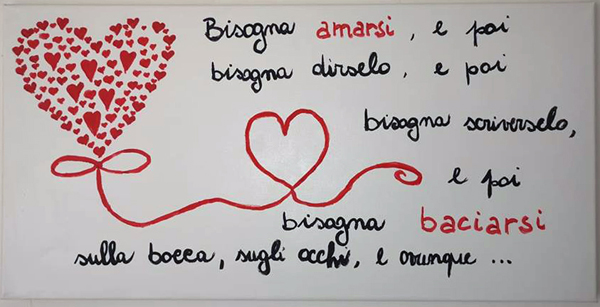 Bisogna amarsi, e poi
bisogna dirselo, e poi
bisogna scriverselo,
e poi
bisogna baciarsi
sulla bocca, sugli occhi, e ovunque ...